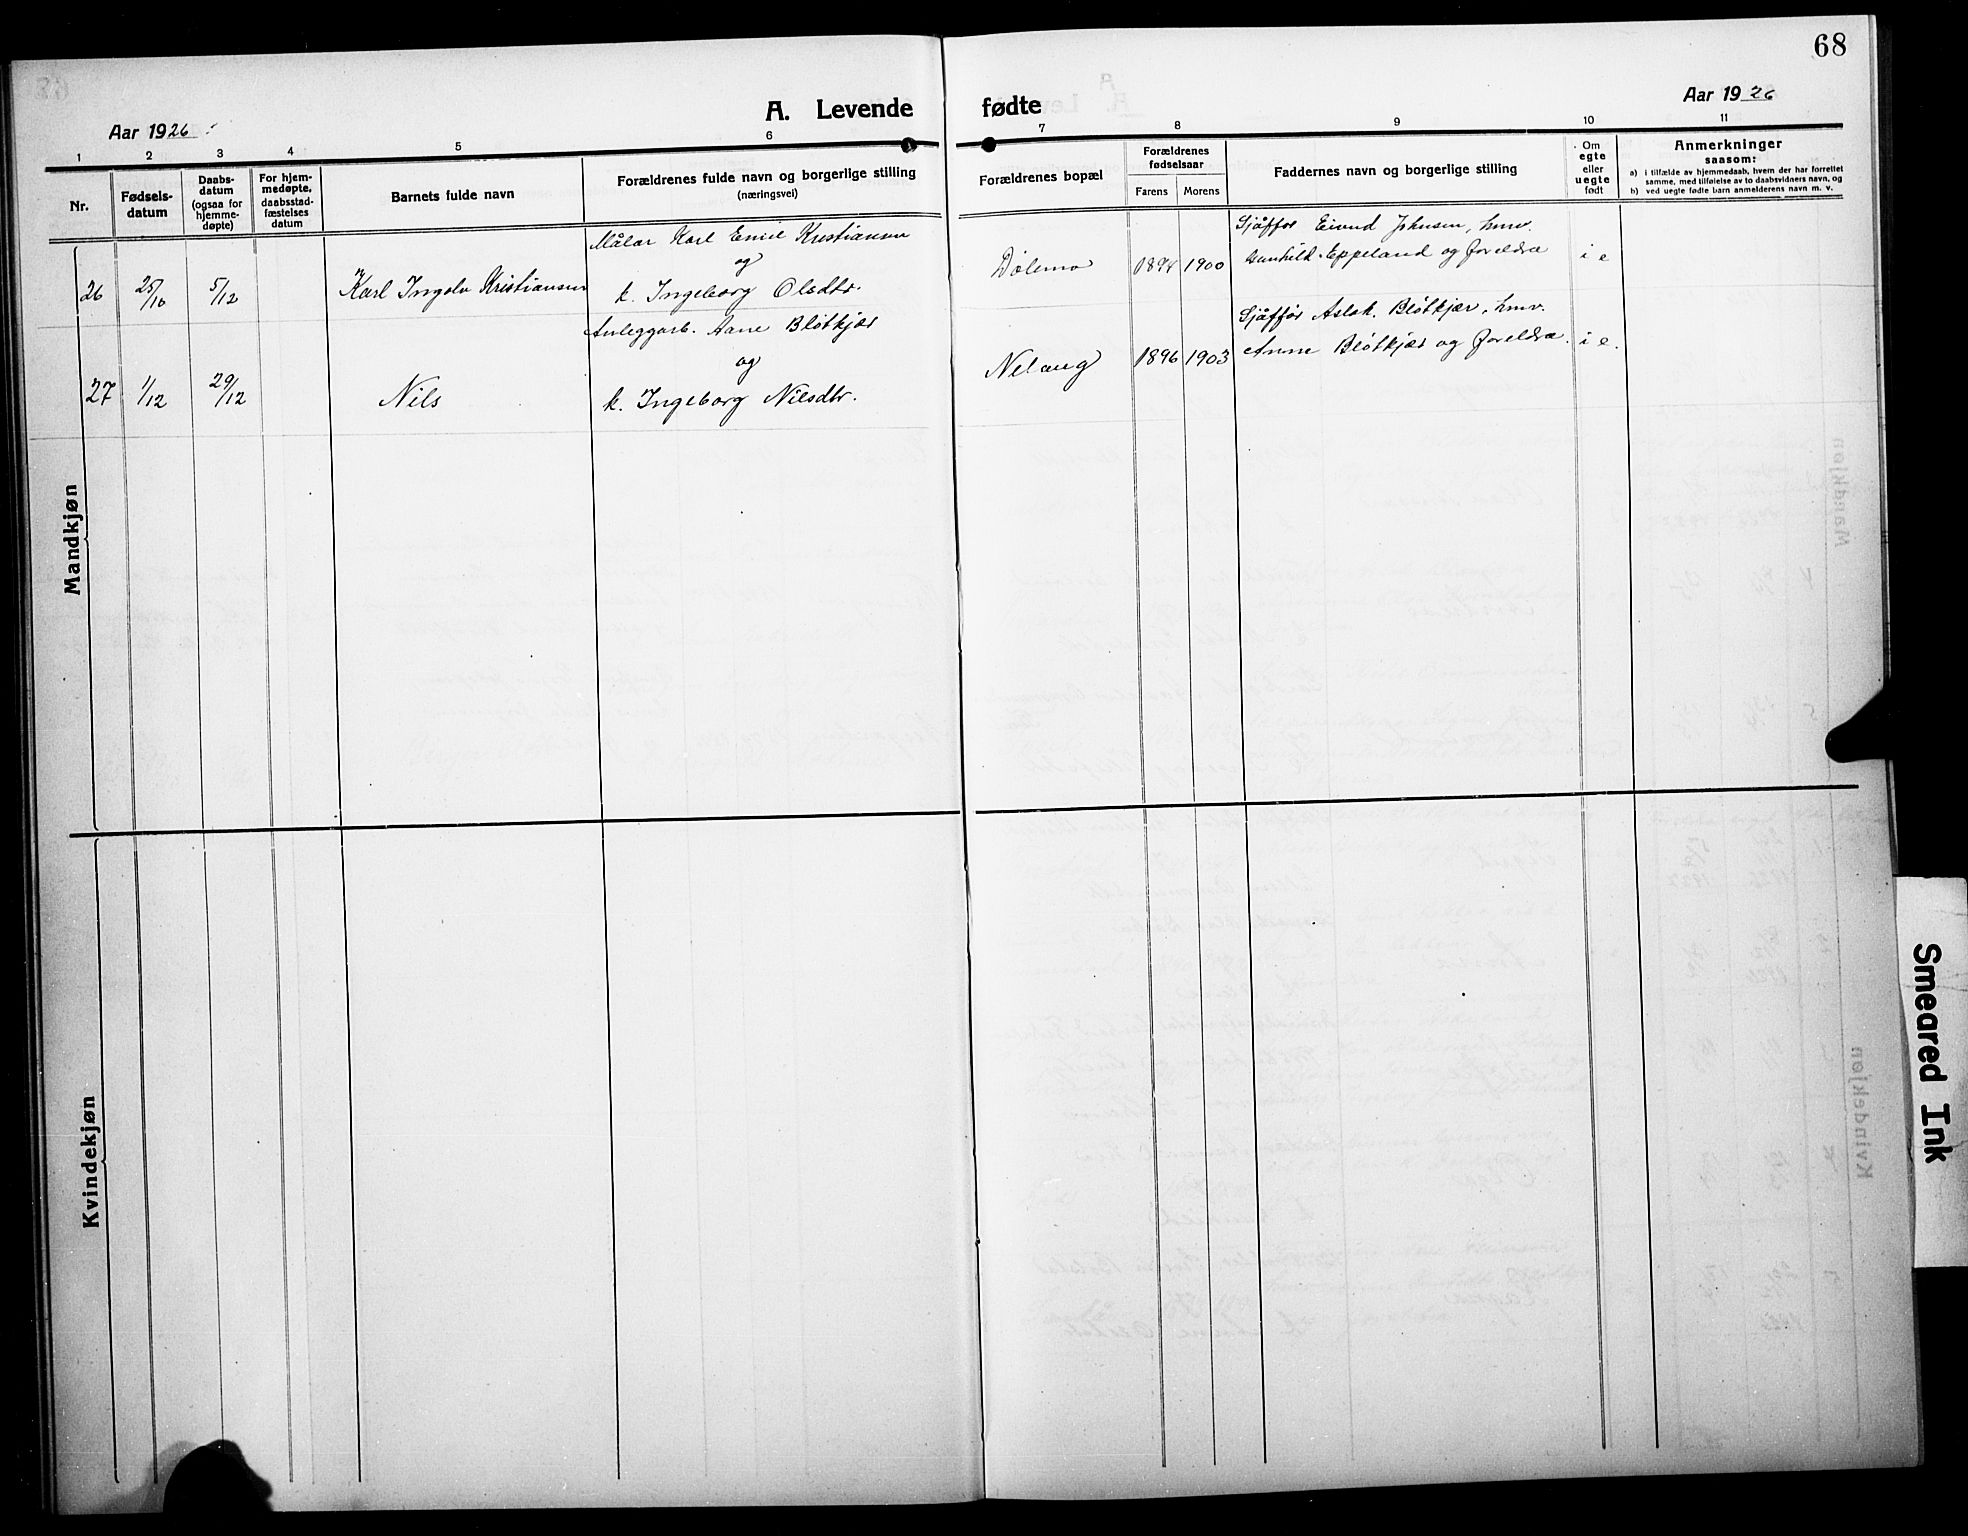 68
A. Levende fødte
Aar 1926
Aar 1926
1 2 3 4 5 6 7 8 9 10 11
Nr.
Fødsels-
datum
Daabs-
datum
(ogsaa for
hjemme-
døpte)
For hjem-
medøpte,
daabsstad-
fæstelses
datum
Barnets fulde navn
Forældrenes fulde navn og borgerlige stilling
(næringsvei)
Forældrenes bopæl
Forældrenes
fødselsaar
Farens Morens
Faddernes navn og borgerlige stilling
Om
egte
eller
uegte
født
Anmerkninger
saasom:
a) i tilfælde av hjemmedaab, hvem der har forrettet
samme, med tilføielse av to daabsvidners navn, og
b) ved uegte fødte barn anmelderens navn m. v.
Mandkjøn
26 25/10 5/12 Karl Ingolv Kristiansen
Målar Karl Emil Kristiansen
og
k. Ingeborg Olsdtr.
Dølemo 1900
Sjåffør Eivind Johnsen, hmv.
Gunhild Eppeland og foreldra
i e
27 1/12 29/12 Nils
Anleggarb. Aane Bløtkjær
og
k. Ingeborg Nilsdtr.
Nelaug 1896 1903
Sjåffør Aslak Bløtkjær, hmv.
Anne Bløtkjær og foreldra.
i e.
Kvindekjøn
Smeared Ink